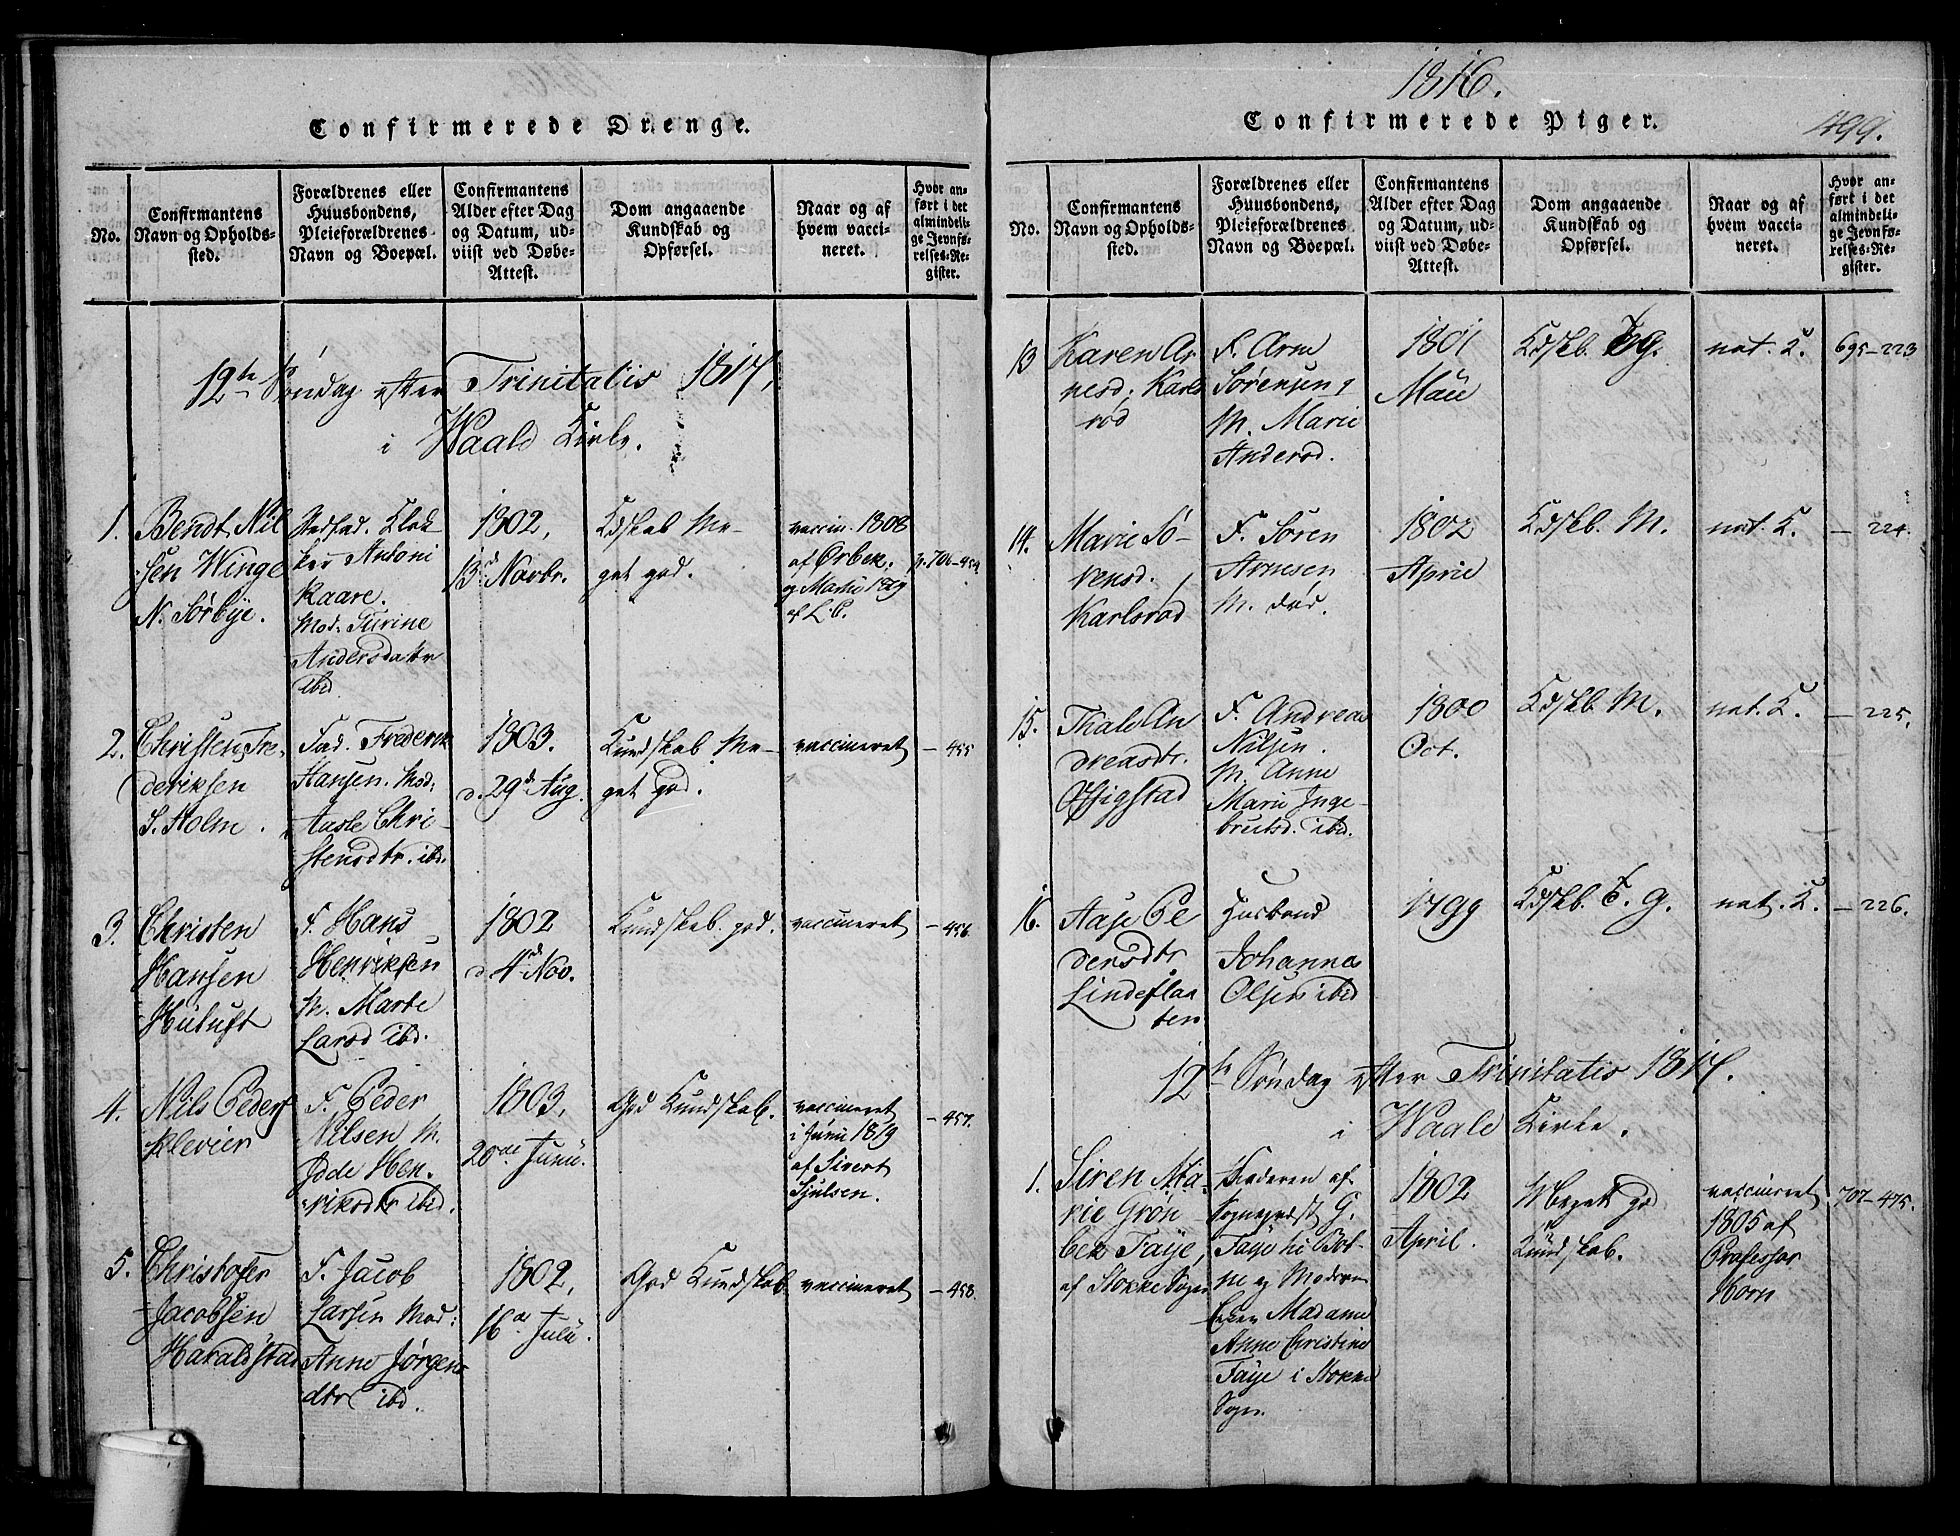 Confirmerede Drenge.
No.
Confirmantens
Navn og Opholds-
sted.
Forældrenes eller
Huusbondens,
Pleieforældrenes
Navn og Boepæl.
Confirmantens
Alder efter Dag
og Datum, ud-
viist ved Døbe-
Attest.
Dom angaaende
Kundskab og
Opførsel.
Naar og af
hvem vacci-
neret.
Hvor an-
ført i det
almindeli-
ge Jevnfø-
relses-Re-
gister.
12te Söndag efter Trinitatis 1817,
i Waale Kirke.
1.
Bendt Nil
sen Winge
N. Sörbÿe.
Klok
ker Antoni
Kaare.
Mod.
Andersdatter
ibid
1802,
13d Novbr.
Kdskab Me-
get god.
vaccin. 1808
af Örbek,
og Martii 1819
af L.C.
p. 706-454
2.
Christen Fre-
deriksen
S. Holm.
Fad. Frederik
Hansen. Mod.
Aasle Chri-
stensdtr. ibd.
1803.
d. 29d Aug.
Kundskab Me-
get god.
vaccineret
- 455
3.
Christen
Hansen
Huluft
F. Hans
Henriksen
M. Marte
Larsd ibd.
1802
d. 4d Nov.
Kundskab. god.
vaccineret
- 456.
4.
Nils Peders
Klevier
F. Peder
Nilsen M.
Hen-
riksdtr ibid.
1803,
20de Junii.
God Kundskab.
vaccineret
i Junii 1819
af Sivert
Sjulsen.
- 457.
5.
Christofer
Jacobsen
Haraldstad
F. Jacob
Larsen Mod:
Anne Jörgens
dtr ibd.
1802,
16de Julii.
God Kundskab
vaccineret
- 458.
1816.
Confirmerede Piger.
499.
No.
Confirmantens
Navn og Opholds-
sted.
Forældrenes eller
Huusbondens,
Pleieforældrenes
Navn og Boepæl.
Confirmantens
Alder efter Dag
og Datum, ud-
viist ved Døbe-
Attest.
Dom angaaende
Kundskab og
Opførsel.
Naar og af
hvem vacci-
neret.
Hvor an-
ført i det
almindeli-
ge Jevnfø-
relses-Re-
gister.
13
Karen Ar
nesd, Karls
röd
F. Arne
Sörensen,
M. Marie
Andersd.
1801
Maii
Kdskb. T. g.
nat. K.
695-223
14.
Marie Sö-
rensd.
Karlsröd
F. Sören
Arnesen
M. död.
1802
April
Kdskb. M.
nat. K.
- 224.
15.
Thale An
dreasdr.
F. Andreas
Nilsen.
M. Anne
Marie Inge-
bretsd. ibid.
1800
Oct.
Kdskb. M.
nat. K.
- 225.
16.
Aase Pe
dersdtr
Lindeflaa
ten
Husbond
Johannes
Olsen ibid
1799
Kdskb. T. g.
nat. K.
- 226.
12te Söndag efter Trinitatis 1817.
i Waale Kirke.
1.
Siren Ma-
rie Grön-
bek Faÿe,
af Stokke Sogn
Faderen af.
Sognepræst G.
Faÿe hi Bot-
ne og Moderen
Madame
Anne Christine
Faÿe i Stokke
Sogn.
1802
April.
Meget god
Kundskab.
vaccineret
1805 af
Professor
Horn
707-475.